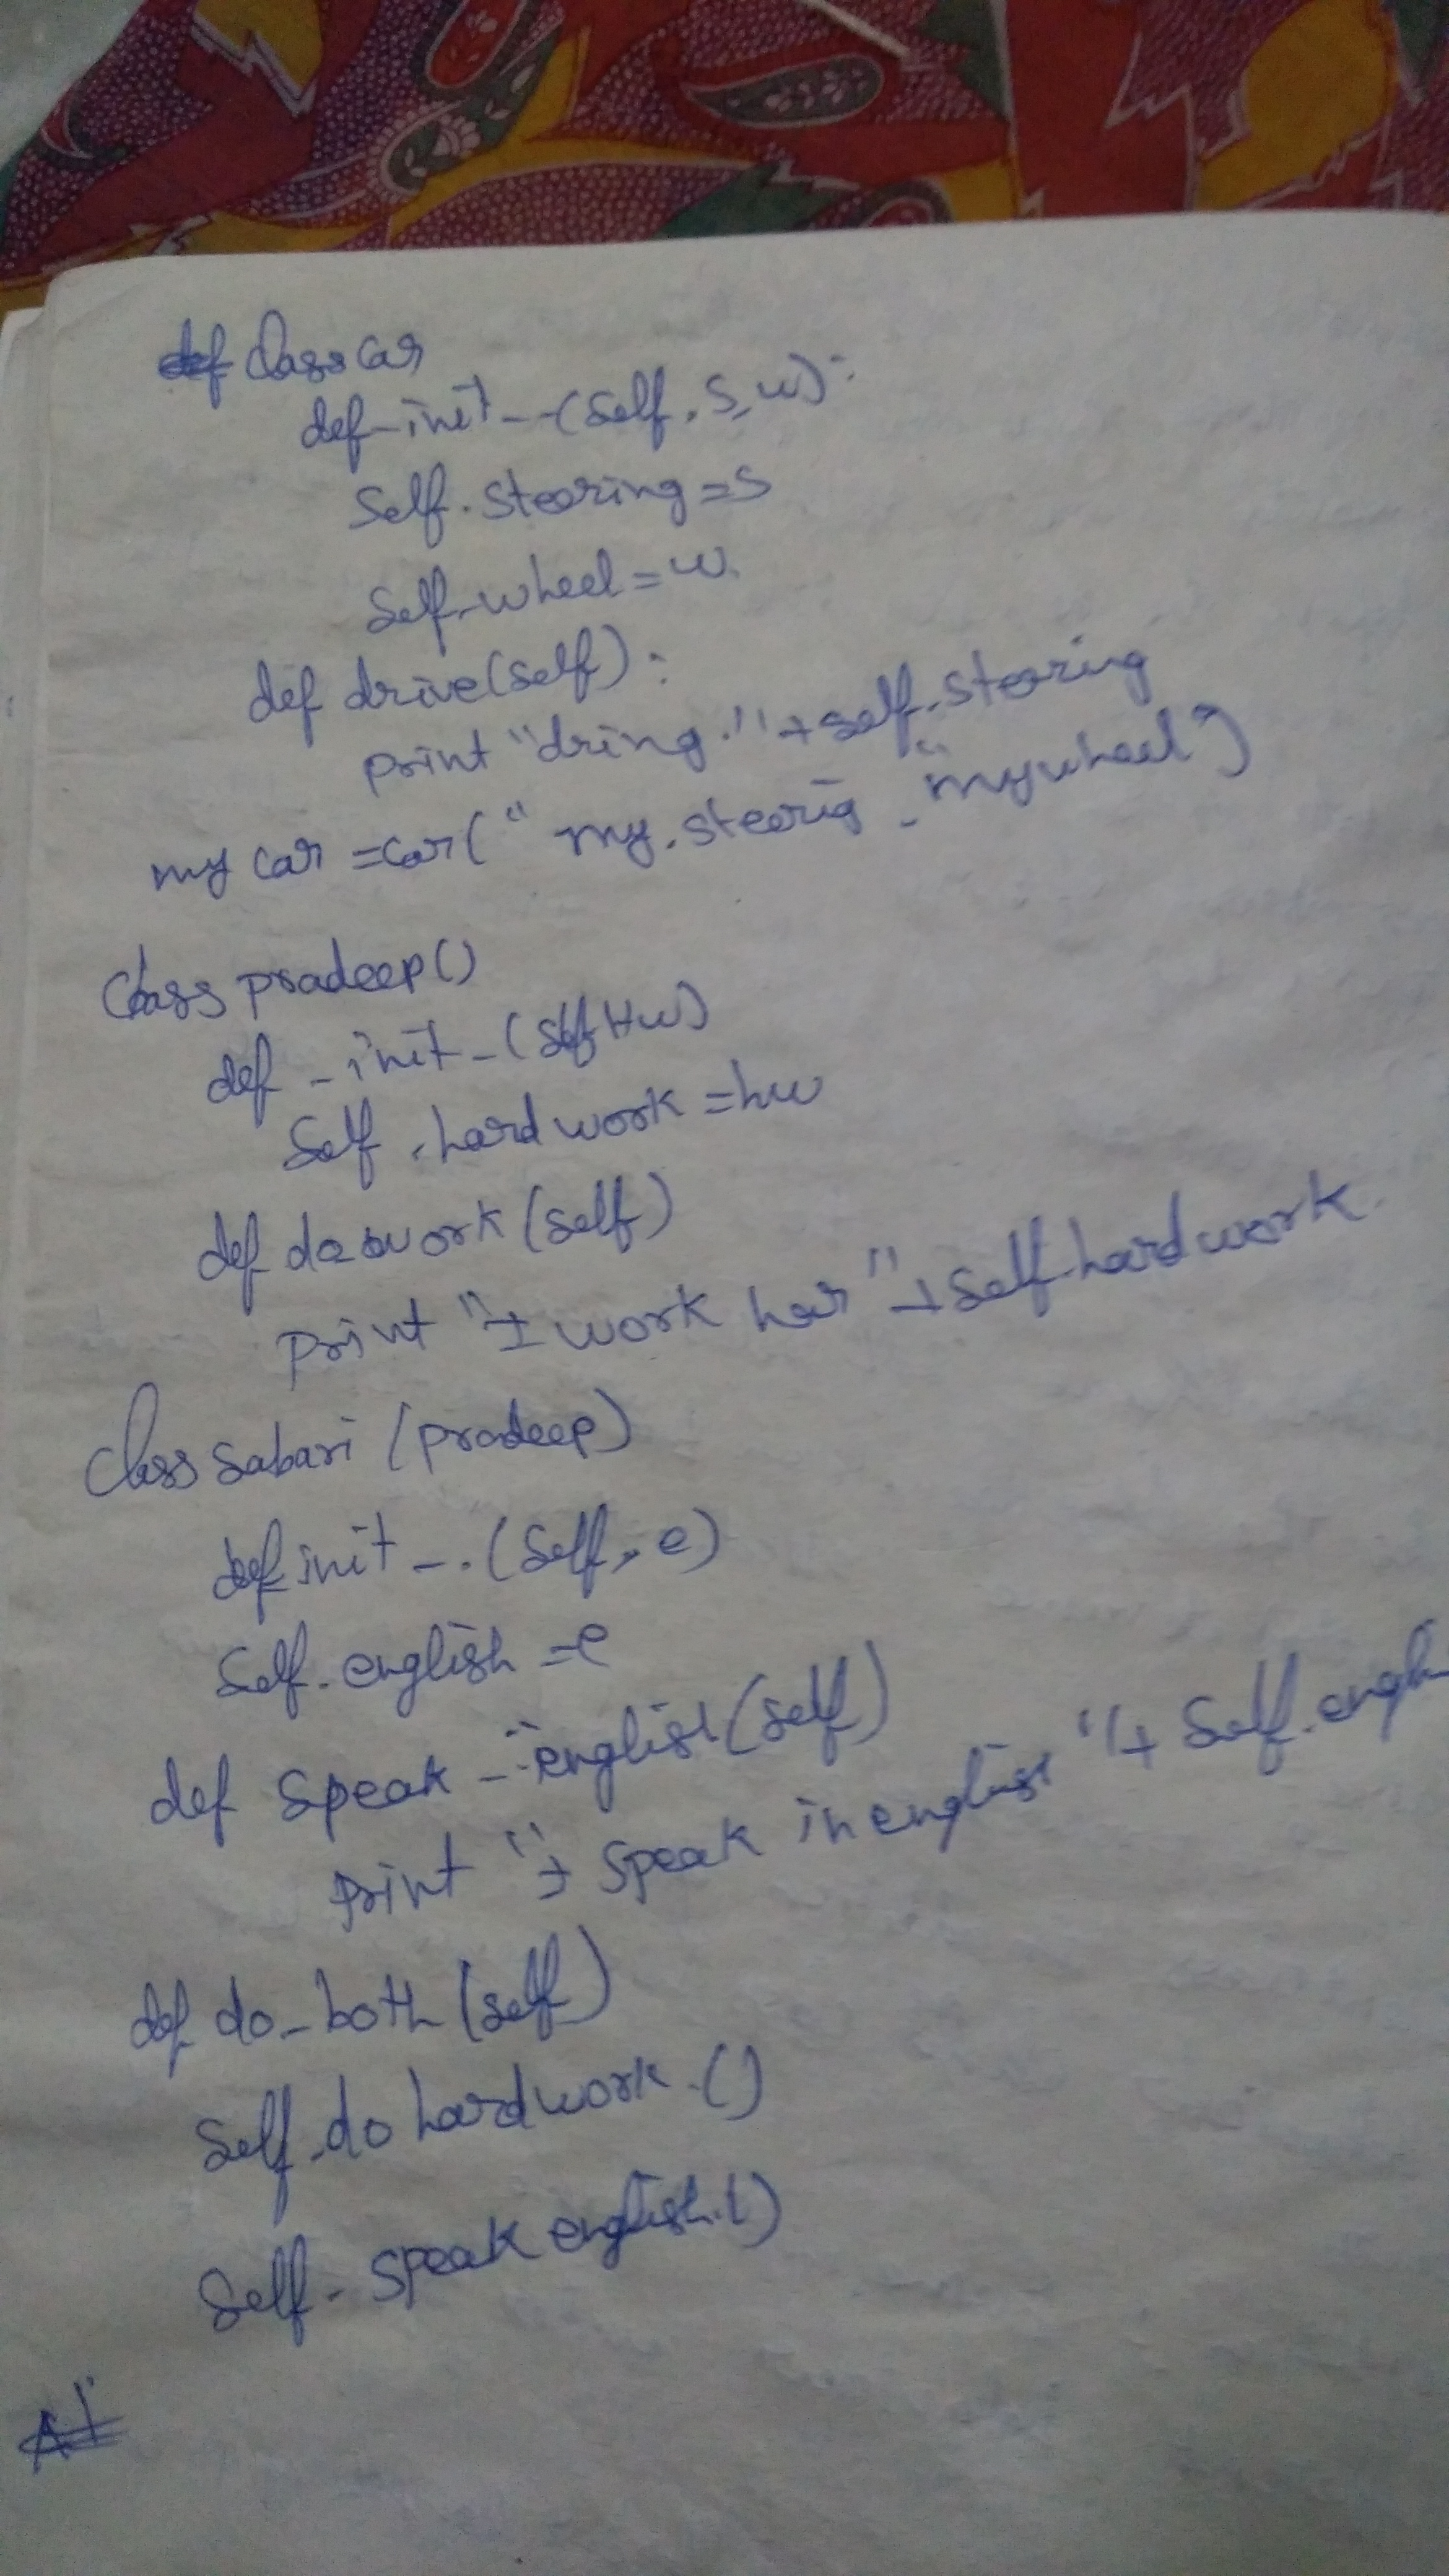 def class car
def-init--(self, s, w):
self.stearing=s
self.wheel=w
def drive(self):
print "dring."+self.stearing
my car=car("my.stearig, "mywheel")
class pradeep()
def -init-(self Hw)
self.hardwork=hw
def do work(self)
print "I work har"+self.hardwork
class sabari (pradeep)
def init-.(self, e)
self.english=e
def speak-english(self)
print "I speak in english"+ self.engli
def do-both(self)
self.do hardwork.()
self. speak english.()